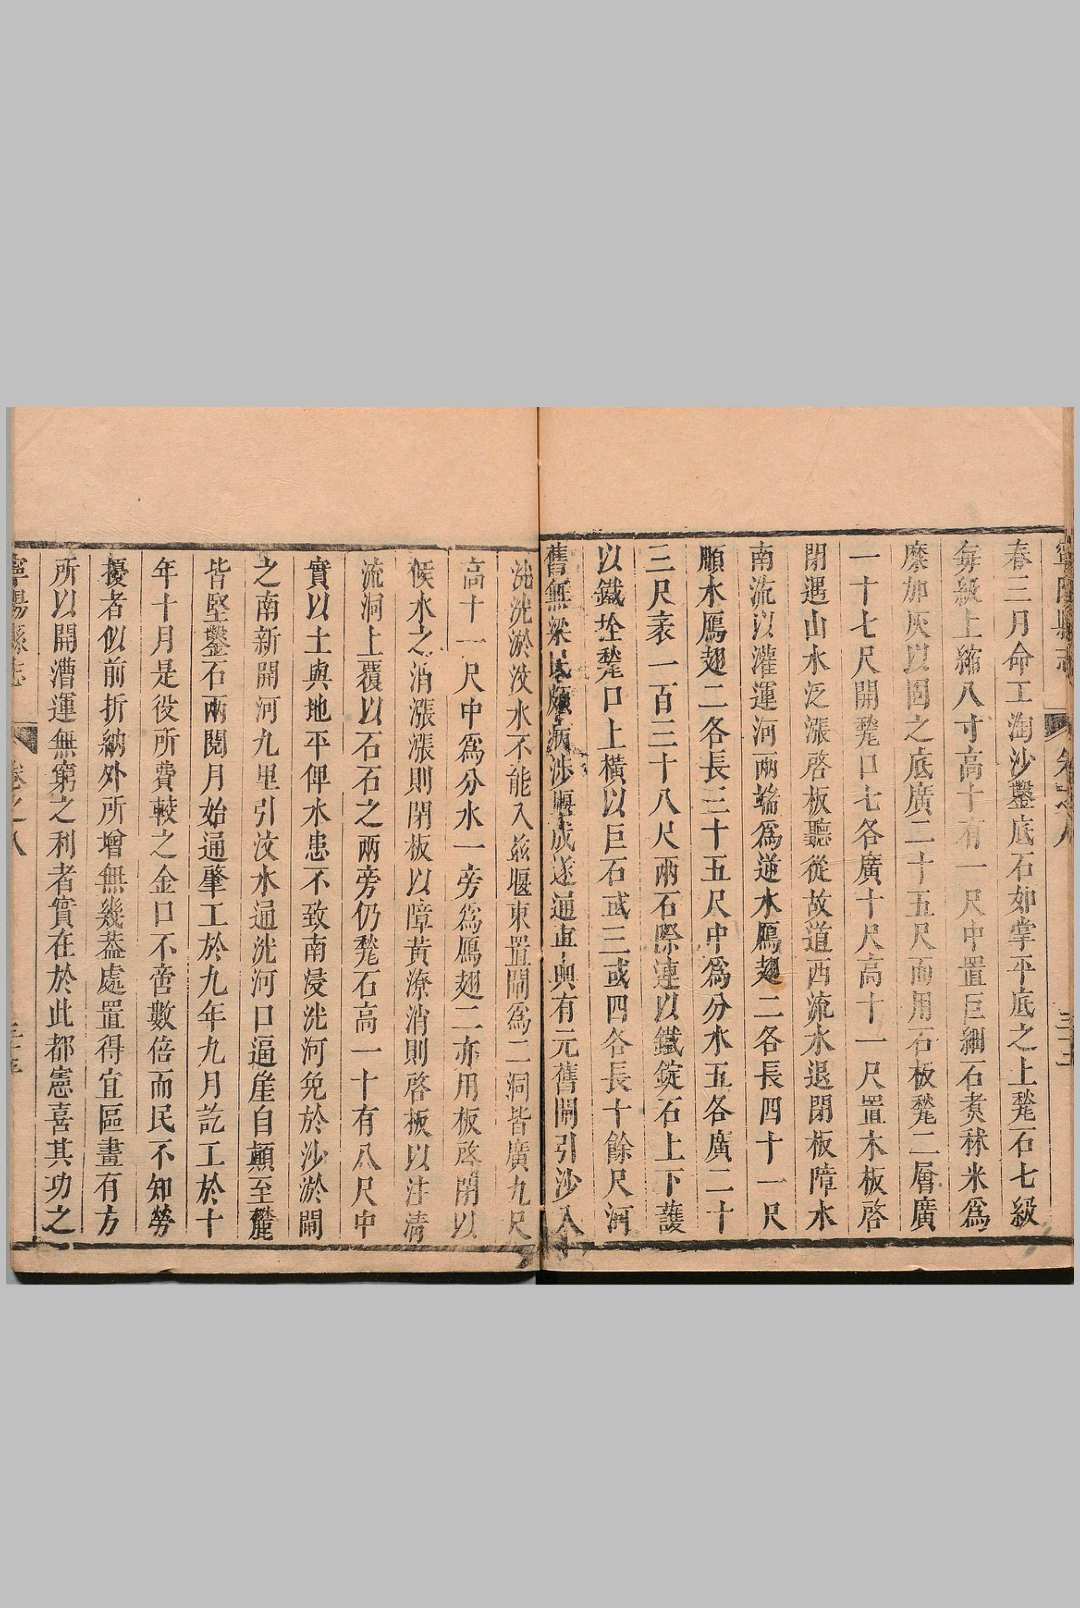 寧陽縣志 卷之八 三十二
春三月命工淘沙鑿底石如掌平底之上甃石七級
每級上縮八寸高十有一尺中置巨細石煮秫米爲
糜加灰以固之底廣二十五尺而用石板甃二層廣
一十七尺開甃口七各廣十尺高十一尺置木板啓
閉遇山水泛漲啓板聽從故道西流水退閉板障水
南流以灌運河兩端爲逆水鴈翅二各長四十一尺
順水鴈翅二各長三十五尺中爲分水五各廣二十
三尺袤一百三十八尺兩石際連以鐵錠石上下護
以鐵拴甃口上橫以巨石或三或四各長十餘尺河
舊無梁民頗病涉堰成遂通車輿有元舊閘引沙入
洸洸淤汶水不能入茲堰東置閘爲二洞皆廣九尺
高十一尺中爲分水一旁爲鴈翅二亦用板啓閉以
候水之消漲漲則閉板以障黃潦消則啓板以注清
流洞上覆以石石之兩旁仍甃石高一十有八尺中
實以土與地平俾水患不致南浸洸河免於沙淤閘
之南新開河九里引汶水通洸河口逼崖自顛至麓
皆堅鑿石兩閱月始通肇工於九年九月訖工於十
年十月是役所費較之金口不啻數倍而民不知勞
擾者似前折納外所增無幾蓋處置得宜區畫有方
所以開漕運無窮之利者實在於此都憲喜其功之
寧陽縣志 卷之八